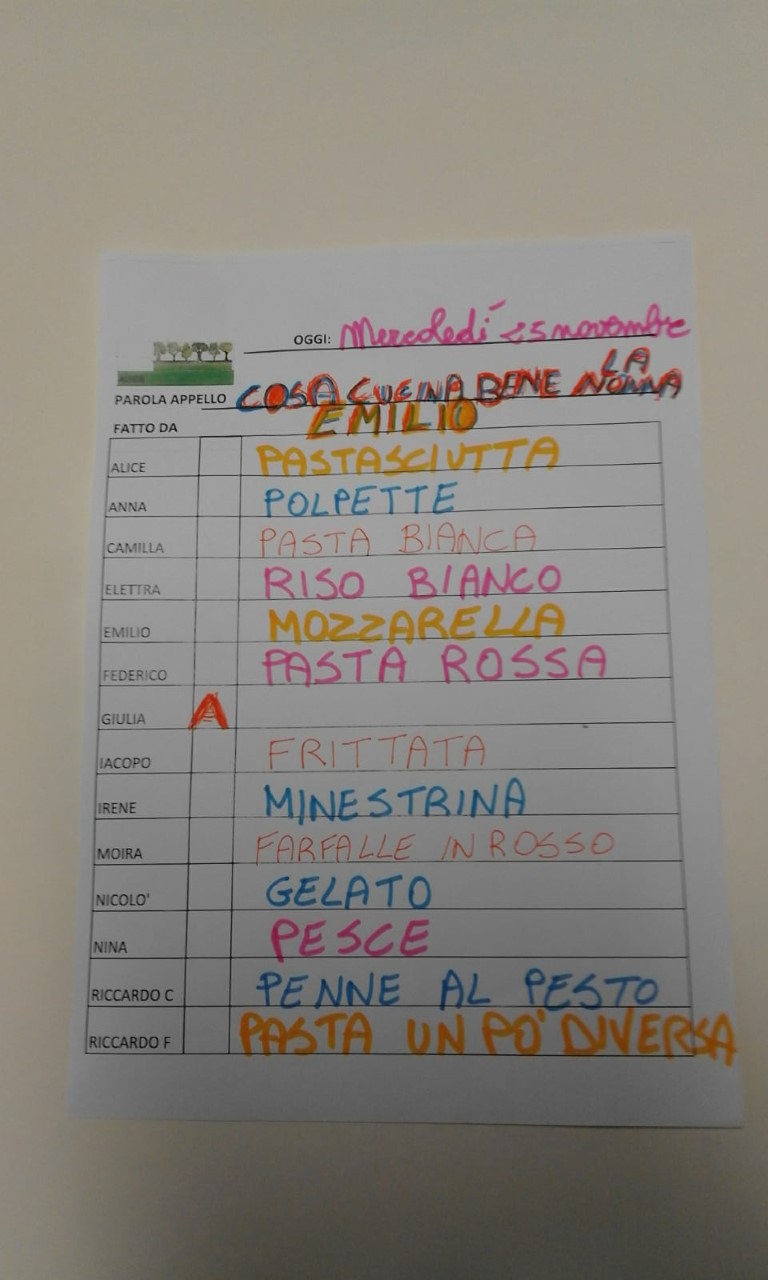 OGGI: Mercoledí 25 novembre
PAROLA APPELLO COSA CUCINA BENE LA NONNA
FATTO DA EMILIO
ALICE PASTASCIUTTA
ANNA POLPETTE
CAMILLA PASTA BIANCA
ELETTRA RISO BIANCO
EMILIO MOZZARELLA
FEDERICO PASTA ROSSA
GIULIA A
IACOPO FRITTATA
IRENE MINESTRINA
MOIRA FARFALLE IN ROSSO
NICOLO' GELATO
NINA PESCE
RICCARDO C PENNE AL PESTO
RICCARDO F PASTA UN PO' DIVERSA